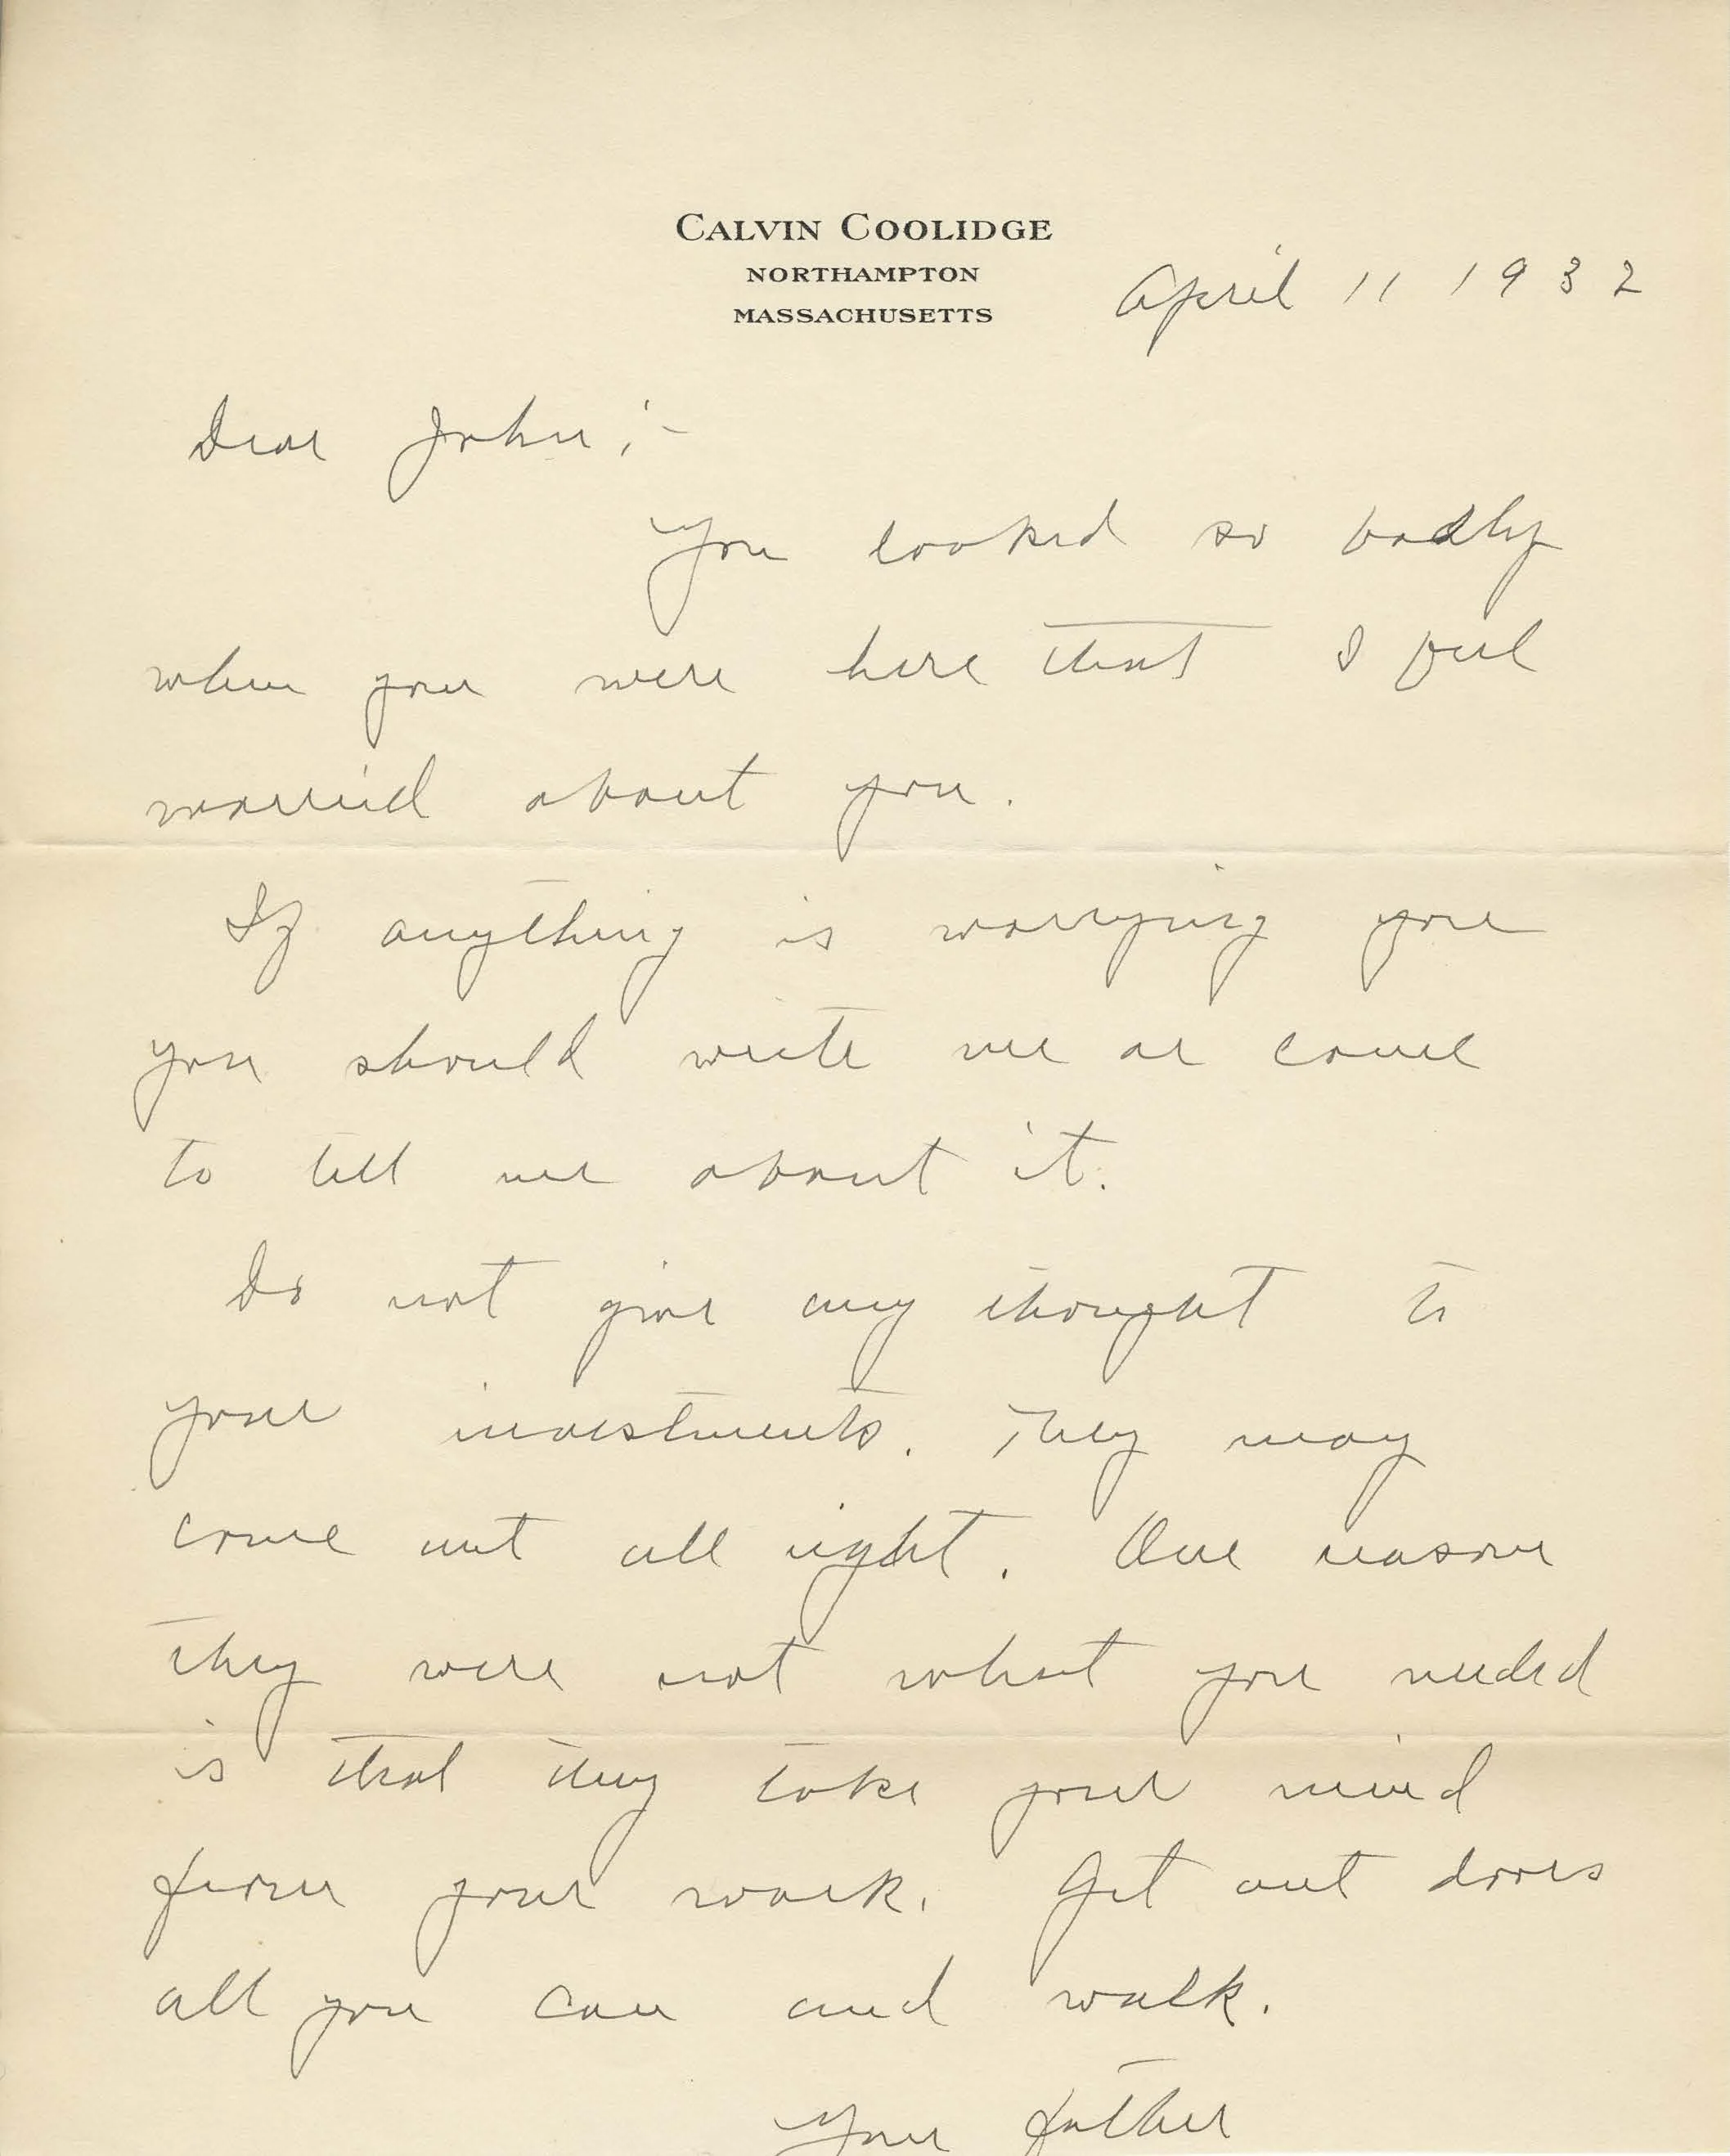 CALVIN COOLIDGE
NORTHAMPTON
MASSACHUSETTS
April 11 1932
Dear John :-
You looked so badly
when you were here that I feel
worried about you.
If anything is worrying you
you should write me or come
to tell me about it.
Do not give any thought to
your investments. They may
come out all right. One reason
they were not what you needed
is that they take your mind
from your work. Get out doors
all you can and walk.
Your father